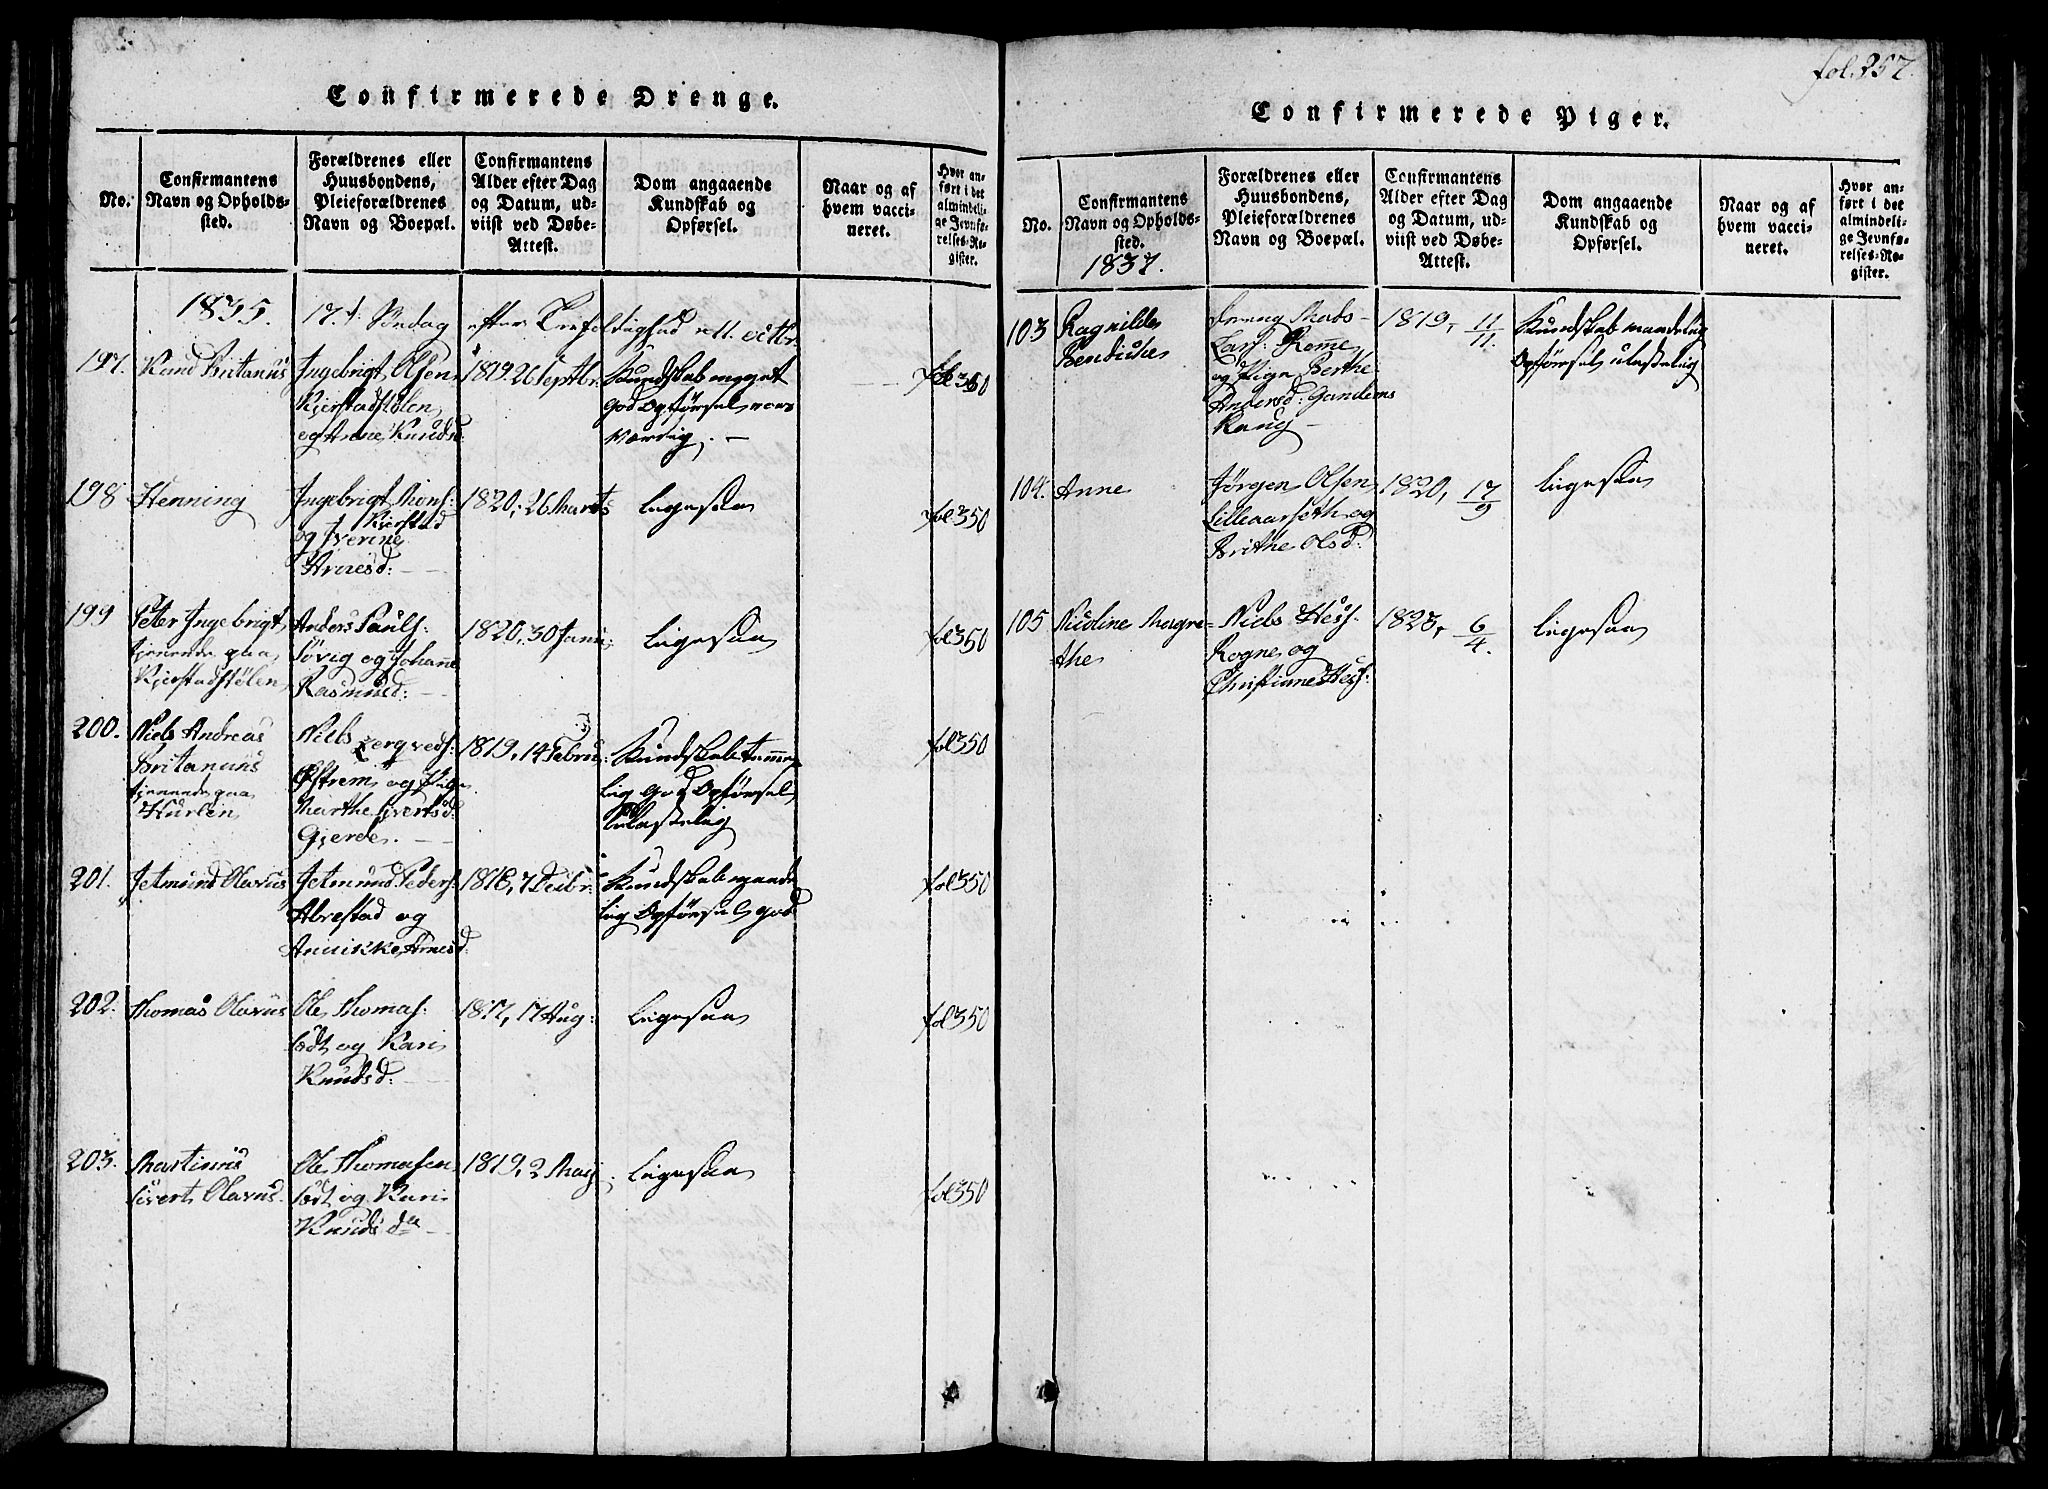 Confirmerede Drenge.
No.
Confirmantens
Navn og Opholds-
sted.
Forældrenes eller
Huusbondens,
Pleieforældrenes
Navn og Boepæl.
Confirmantens
Alder efter Dag
og Datum, ud-
viist ved Døbe-
Attest.
Dom angaaende
Kundskab og
Opførsel.
Naar og af
hvem vacci-
neret.
Hvor an-
ført i det
almindeli-
ge Jevnfø-
relses-Re-
gister.
1835. 17.de Söndag efter Trefoldighed 11. octbr.
197. Knud Britanus
Ingebrigt Olsen
Kjerstadstølen
og Anne Knudsd:
1819. 26 Septbr.
Kundskab meget
god Opførsel
værdig. —
fol 350
198 Henning
Ingebrigt Mons:
Kjerstad
og Iverine
Arnesd:
1820, 26 Marts
ligesaa
fol 350
199 Peter Ingebrigt
tjenende paa
Kjerstadstølen
Anders Pauls:
Søvig og Johanne
Rasmusd:
1820, 30 Janu:
ligesaa
fol 350
200. Niels Andreas
Britanus
tjenende paa
Hurlen
Niels
Østrem og Pige
Marthe Sivertsd:
Gjerde. —
1819, 14 Febru:
Kundskab tamme-
lig god Opførsel
ulastelig
fol 350
201. Jetmund Olavus
Jetmund Peders:
Abrestad og
Annikke Arnesd:
1818, 7 Decbr:
Kundskab maade-
lig Opførsel god
fol 350
202. Thomas Olavus
Ole Thomas:
og Kari
Knudsd:
1817, 17 Aug:
ligesaa
fol 350
203. Martinus
Sivert Olavus
Ole Thomasen
og Kari
Knuds dr
1819, 2 Maij
ligesaa
fol 350
fol. 357.
Confirmerede Piger.
No.
Confirmantens
Navn og Opholds-
sted.
1837.
Forældrenes eller
Huusbondens,
Pleieforældrenes
Navn og Boepæl.
Confirmantens
Alder efter Dag
og Datum, ud-
viist ved Døbe-
Attest.
Dom angaaende
Kundskab og
Opførsel.
Naar og af
hvem vacci-
neret.
Hvor an-
ført i det
almindeli-
ge Jevnfø-
relses-Re-
gister.
103 Ragnilde
Bendicke
Dreng Mads
Lars: Romme
og Pige Berthe
Andersd: Gandems
Haug —
1819, 11/11.
Kundskab maadelig
Opførsel ulastelig
104. Anne
Jørgen Olsen
Lilleaarseth og
Brithe Olsd:
1820, 17/9
ligesaa
105 Nicoline Magre-
the
Niels Hess:
Rogne og
Christiane Hess:
1823, 6/4.
ligesaa